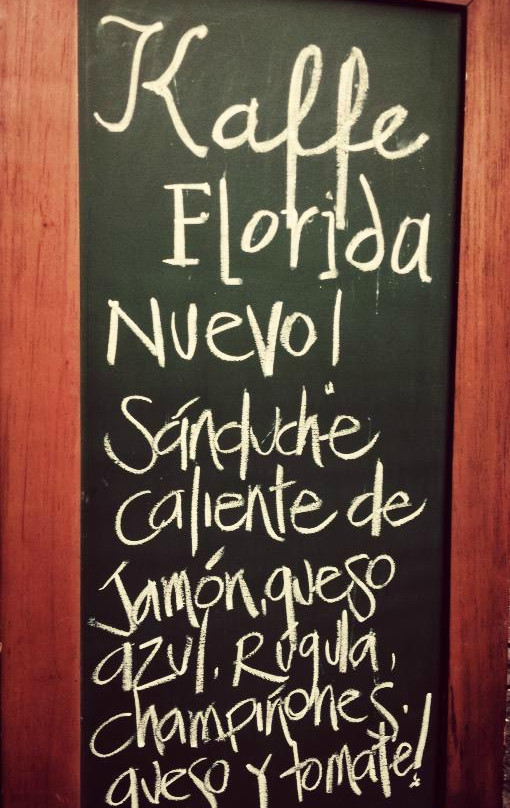 Kaffe
Florida
Nuevo!
Sánduche
caliente de
Jamón, queso
azul, Rúgula,
champiñones,
queso y tomate!